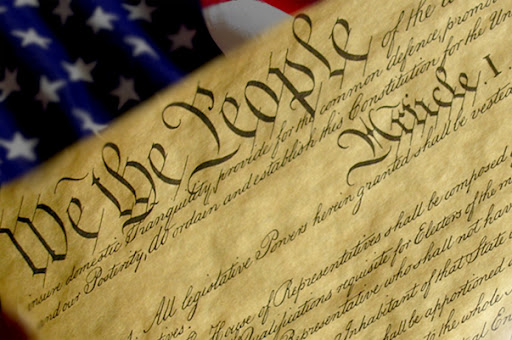 We the People of the
insure domestic Tranquility, provide for the common defence, promo
and our Posterity, do ordain and establish this Constitution for the Unit
Article I.
All legislative Powers herein granted shall be vested
House of Representatives shall be composed
Qualifications requisite for Electors of the m
Representative who shall not hav
Inhabitant of that State
shall be apportioned
to the whole